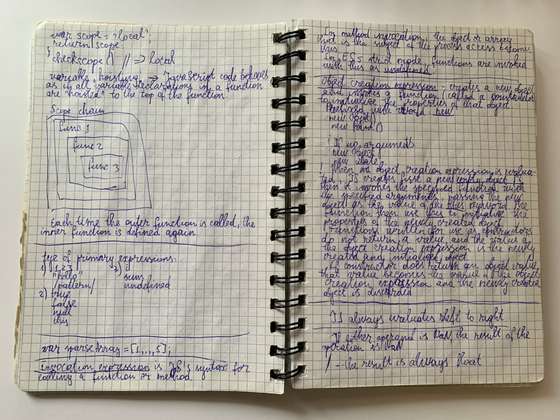 var scope = "local"
return scope
}
checkscope() // => local
variable hoisting → JavaScript code behaves
as if all variable declarations in a function
are hoisted to the top of the function
Scope chain
func 1
func 2
func 3
Each time the outer function is called, the
inner function is defined again
type of primary expressions:
1) 1,23 3) i
"hello" sum
/pattern/ undefined
2) true
false
null
this
var sparseArray = [1,,,5];
invocation expression is JS's syntax for
calling a function or method
In method invocation, the object or array
that is the subject of the process access becomes
this.
In ES5 strict mode, functions are invoked
with this as undefined
Object creation expression - creates a new object
and invokes a function called a constructor
to initialize the properties of that object
keyword new
new Object()
new Point()
If no arguments
new Object
new Date
When an object creation expression is evalua-
ted, JS creates first a new empty object
then it invokes the specified function with
the specified arguments, passing the new
object as the value of the this keyword. The
function can use this to initialize the
properties of the newly created object.
Functions written for use as constructors
do not return a value, and the value of
the object creation expression is the newly
created and initialized object.
If constructor does return an object value,
that value becomes the value of the object
creation expression and the newly created
object is discarded
JS always evaluates left to right
If either operand is NaN the result of the
operation is NaN
/ - the result is always float